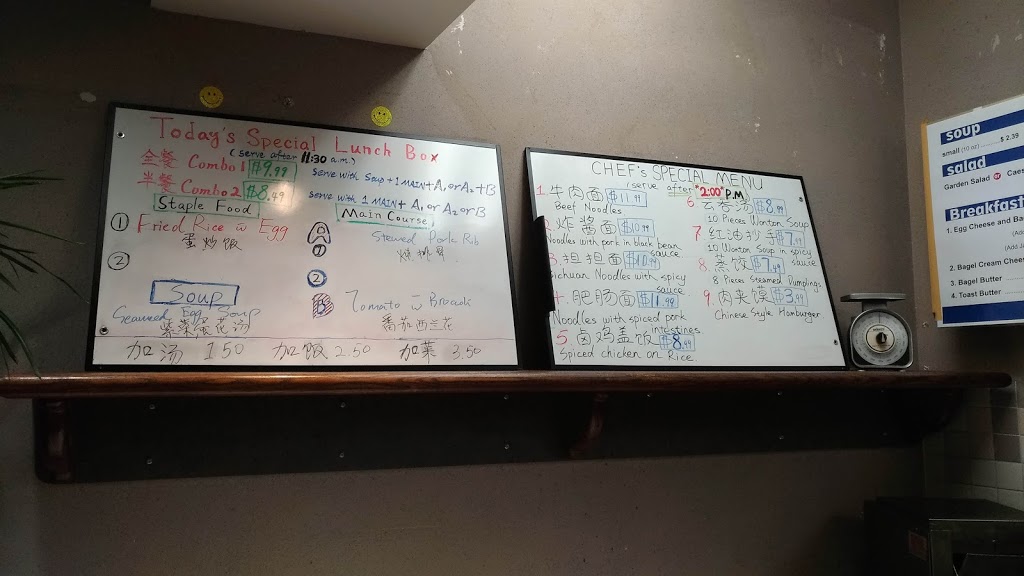 Today's Special Lunch Box
(serve after 11:30 a.m.)
全餐 Combo1 $9.99 serve with Soup+1MAIN+A1 or A2+B
半餐 Combo2 $8.49 serve with 1 MAIN+A1 or A2 or B
Staple Food
① Fried Rice w Egg
蛋炒饭
②
Soup
Seaweed Egg Soup
紫菜蛋花汤
Main Course
A
1
Stewed Pork Rib
烧排骨
2
B
Tomato w Brocoli
番茄西兰花
加汤 1.50 加饭 2.50 加菜 3.50
CHEF's SPECIAL MENU
(serve after "2:00" P.M.
1. 牛肉面 $11.99
Beef Noodles
2. 炸酱面 $10.99
Noodles with pork in black bean sauce
3. 担担面 $10.99
Sichuan Noodles with spicy sauce
4. 肥肠面 $11.99
Noodles with spiced pork intestines
5. 卤鸡盖饭 $8.99
Spiced chicken on Rice
6 $8.99
10 Pieces Wonton Soup
7. 红油抄手 $7.99
10 Wonton Soup in spicy sauce
8. 蒸饺 $7.99
8 Pieces Steamed Dumplings
9. 肉夹馍 $3.99
Chinese Style Hamburger
soup
small (10 oz) $ 2.39
salad
Garden Salad or Caes
Breakfast
1. Egg Cheese and Ba
(Add
(Add J
2. Bagel Cream Chees
3. Bagel Butter
4. Toast Butter